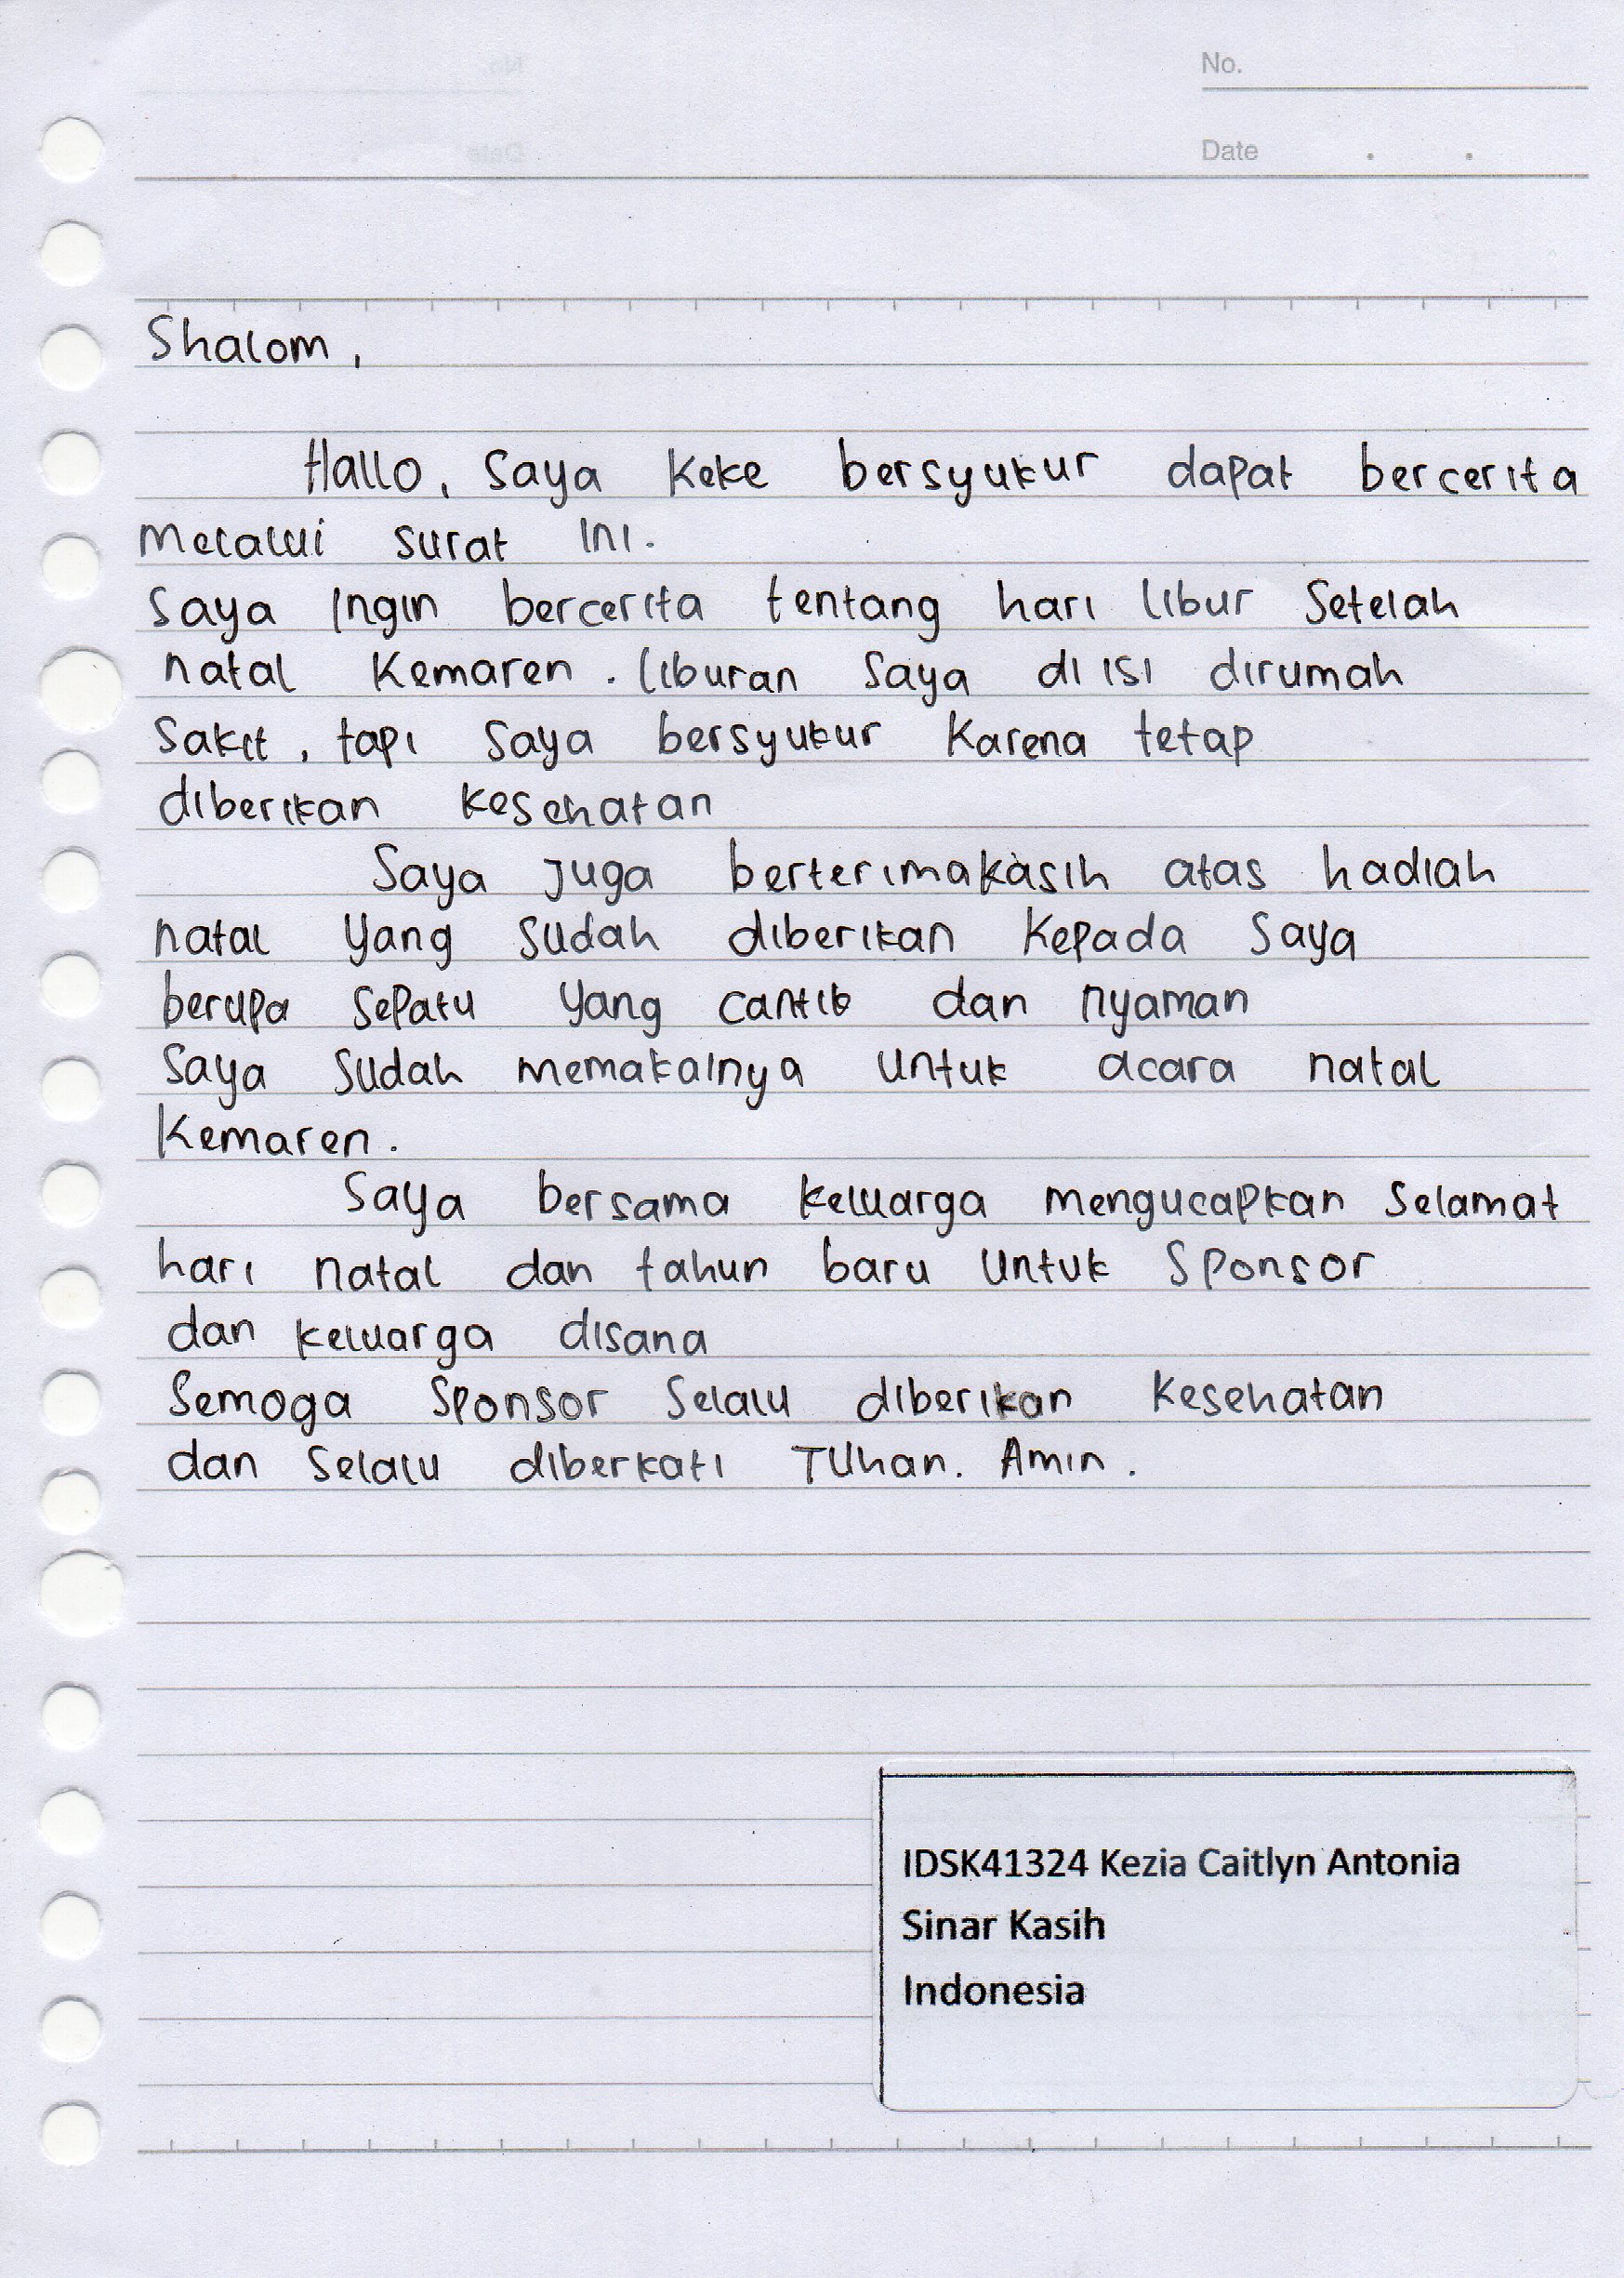 No.
Date
Shalom,
Hallo, saya Keke bersyukur dapat bercerita
melalui surat ini.
Saya ingin bercerita tentang hari libur setelah
natal kemaren. liburan saya di isi dirumah
sakit, tapi saya bersyukur karena tetap
diberikan kesehatan
Saya juga berterimakasih atas hadiah
natal yang sudah diberikan kepada saya
berupa sepatu yang cantik dan nyaman
saya sudah memakainya untuk acara natal
kemaren.
Saya bersama keluarga mengucapkan selamat
hari natal dan tahun baru untuk sponsor
dan keluarga disana
Semoga sponsor selalu diberikan kesehatan
dan selalu diberkati Tuhan. Amin.
IDSK41324 Kezia Caitlyn Antonia
Sinar Kasih
Indonesia